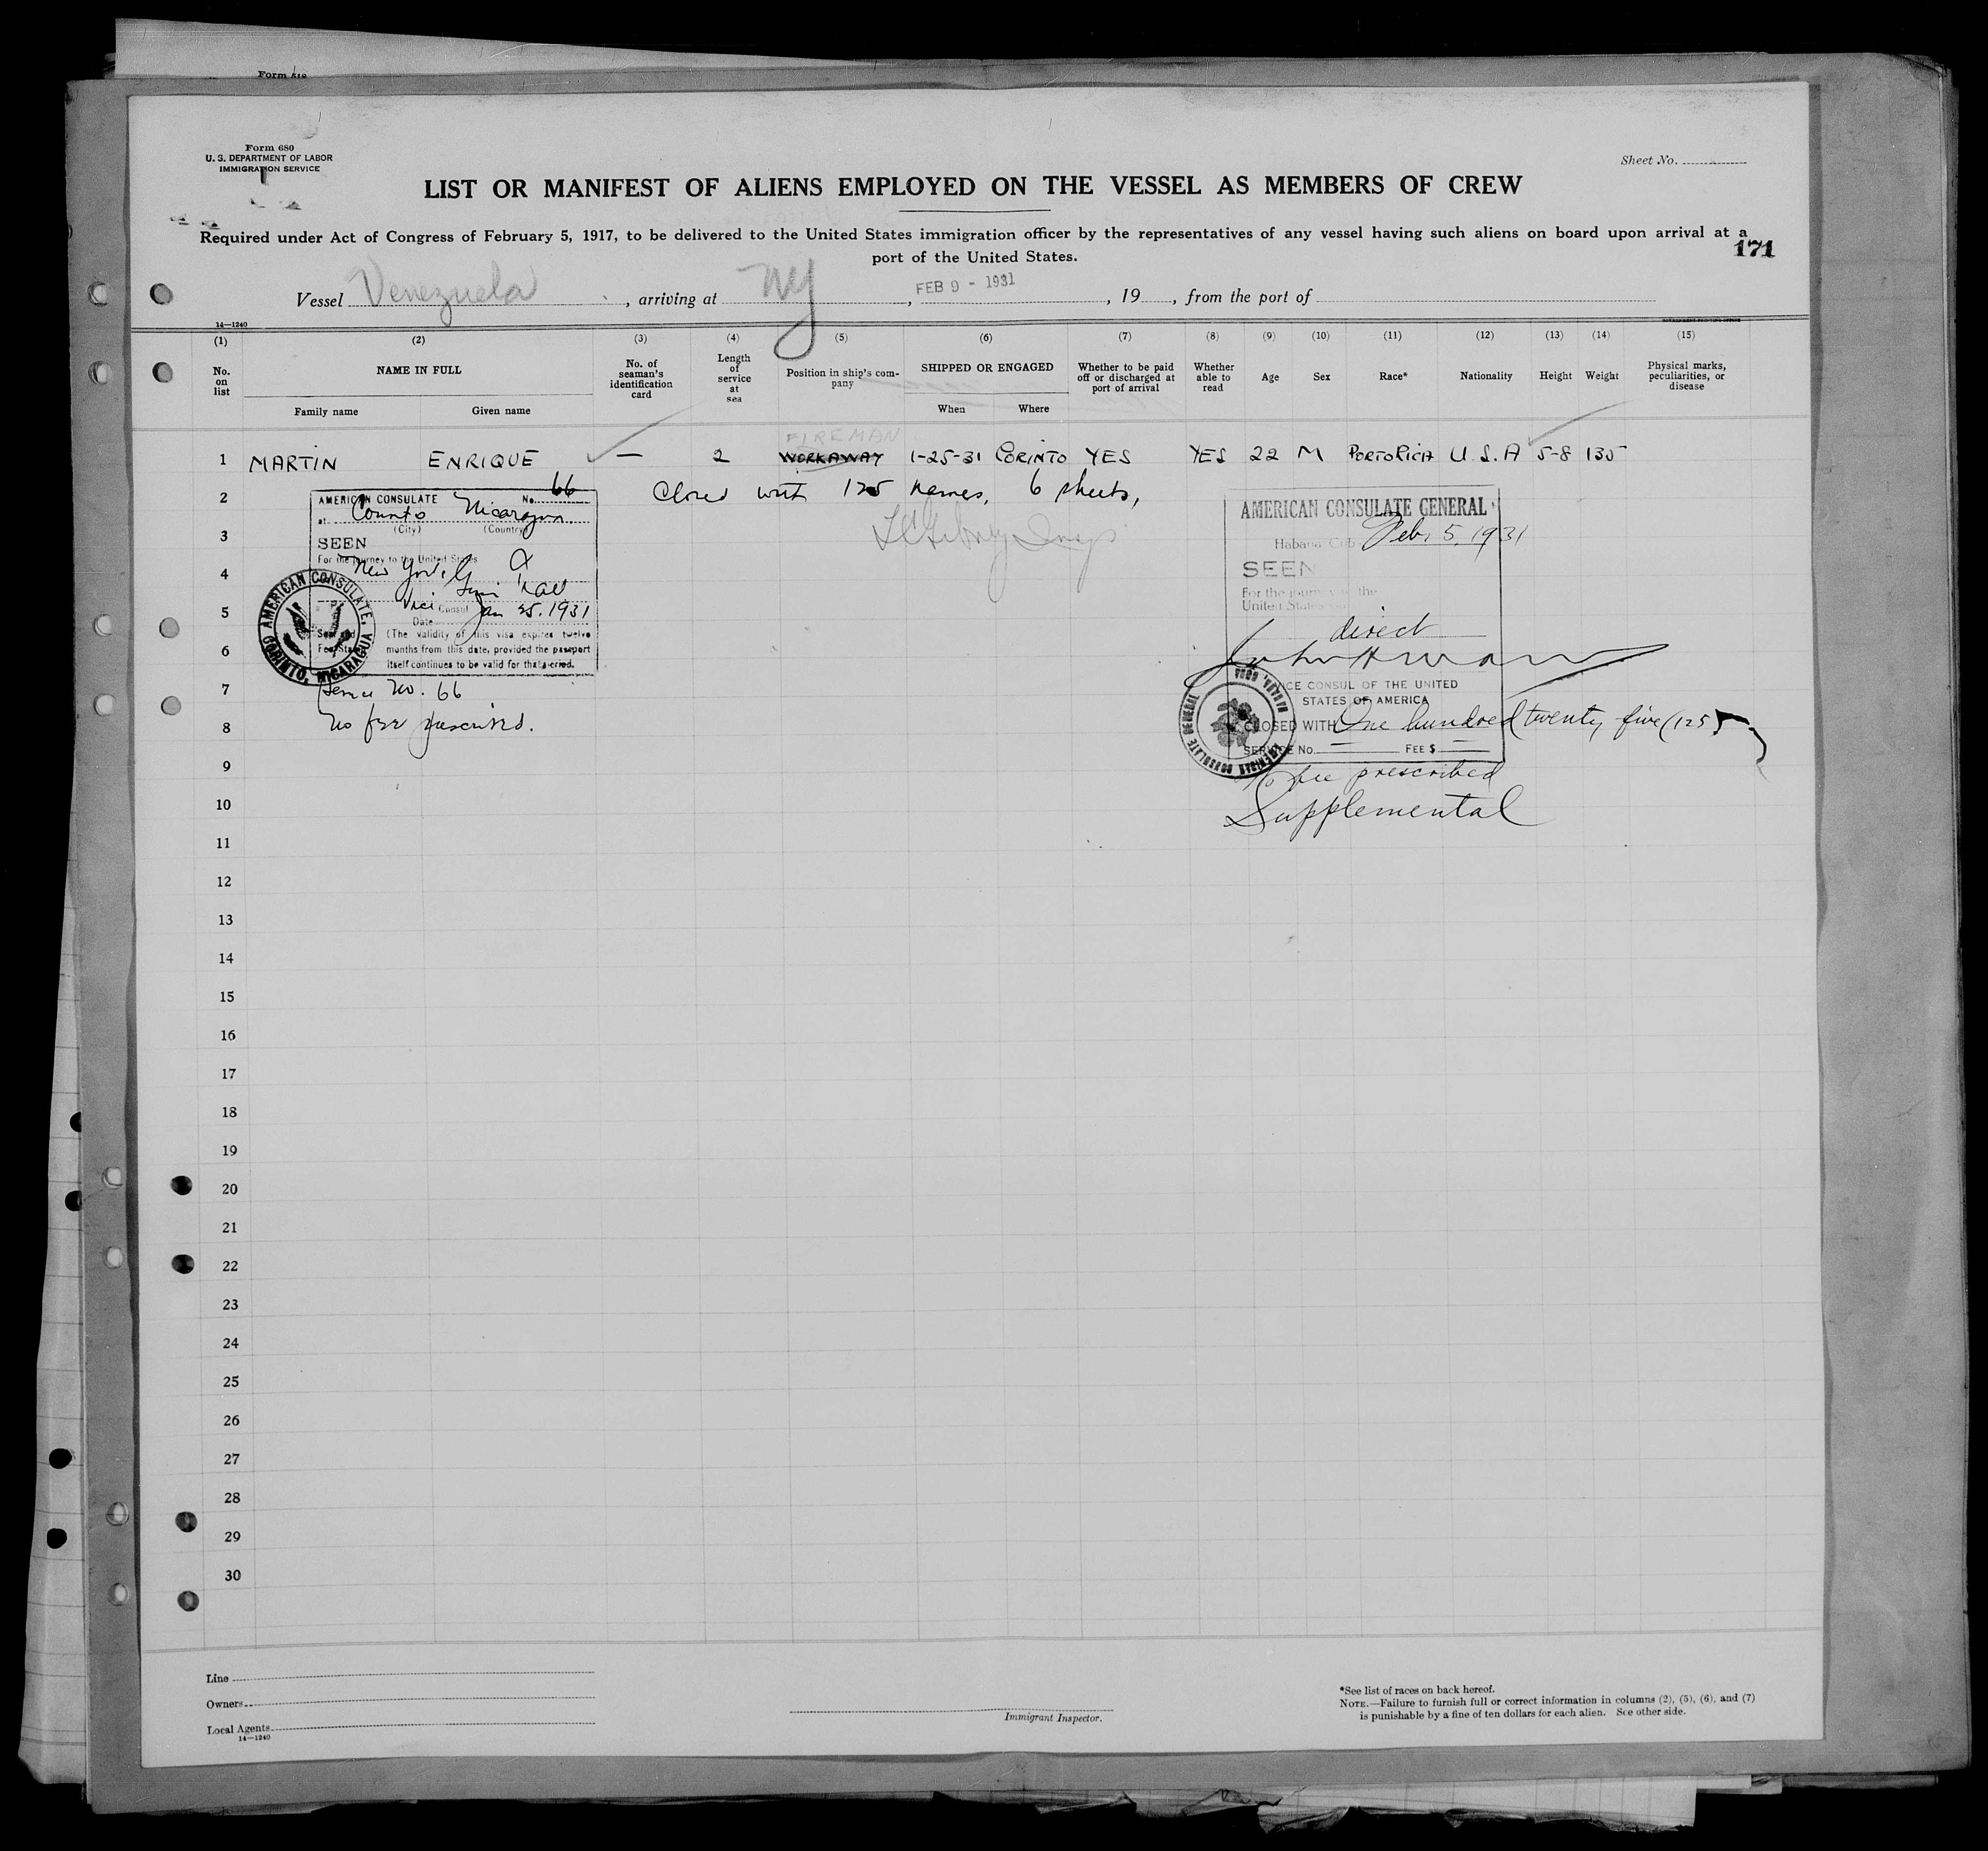 Form 680
U. S. DEPARTMENT OF LABOR
IMMIGRATION SERVICE
Sheet No.
LIST OR MANIFEST OF ALIENS EMPLOYED ON THE VESSEL AS MEMBERS OF CREW
Required under Act of Congress of February 5, 1917, to be delivered to the United States immigration officer by the representatives of any vessel having such aliens on board upon arrival at a
port of the United States.
171
Vessel Venezuela, arriving at NY, FEB 9 - 1931, 19, from the port of
14—1240
(1) (2) (3) (4) (5) (6) (7) (8) (9) (10) (11) (12) (13) (14) (15)
No. on list
NAME IN FULL
Family name Given name
No. of seaman's identification card
Length of service at sea
Position in ship's company
SHIPPED OR ENGAGED
When Where
Whether to be paid off or discharged at port of arrival
Whether able to read
Age Sex Race* Nationality Height Weight
Physical marks, peculiarities, or disease
FIREMAN
1 MARTIN ENRIQUE — 2 WORKAWAY 1-25-31 CORINTO YES YES 22 M PORTORICA U.S.A 5-8 135
2 Closed with 125 names, 6 sheets,
3
4
5
6
7
8
9
10
11
12
13
14
15
16
17
18
19
20
21
22
23
24
25
26
27
28
29
30
AMERICAN CONSULATE No. 66
at Corinto Nicaragua
(City) (Country)
SEEN
For the journey to the United States
New York
Vice Consul
Date Jan 25. 1931
(The validity of this visa expires twelve
months from this date, provided the passport
itself continues to be valid for that period.
AMERICAN CONSULATE,
CORINTO, NICARAGUA
Service No. 66
No fee prescribed.
AMERICAN CONSULATE GENERAL
Habana Cuba Feb. 5, 1931
SEEN
For the journey to the
United States
direct
VICE CONSUL OF THE UNITED
STATES OF AMERICA
CLOSED WITH One hundred twenty five (125)
SERVICE No. — FEE $ —
No fee prescribed
Supplemental
AMERICAN CONSULATE GENERAL
HABANA, CUBA
Line
Owners
Local Agents
14—1240
Immigrant Inspector.
*See list of races on back hereof.
NOTE.—Failure to furnish full or correct information in columns (2), (5), (6), and (7)
is punishable by a fine of ten dollars for each alien. See other side.